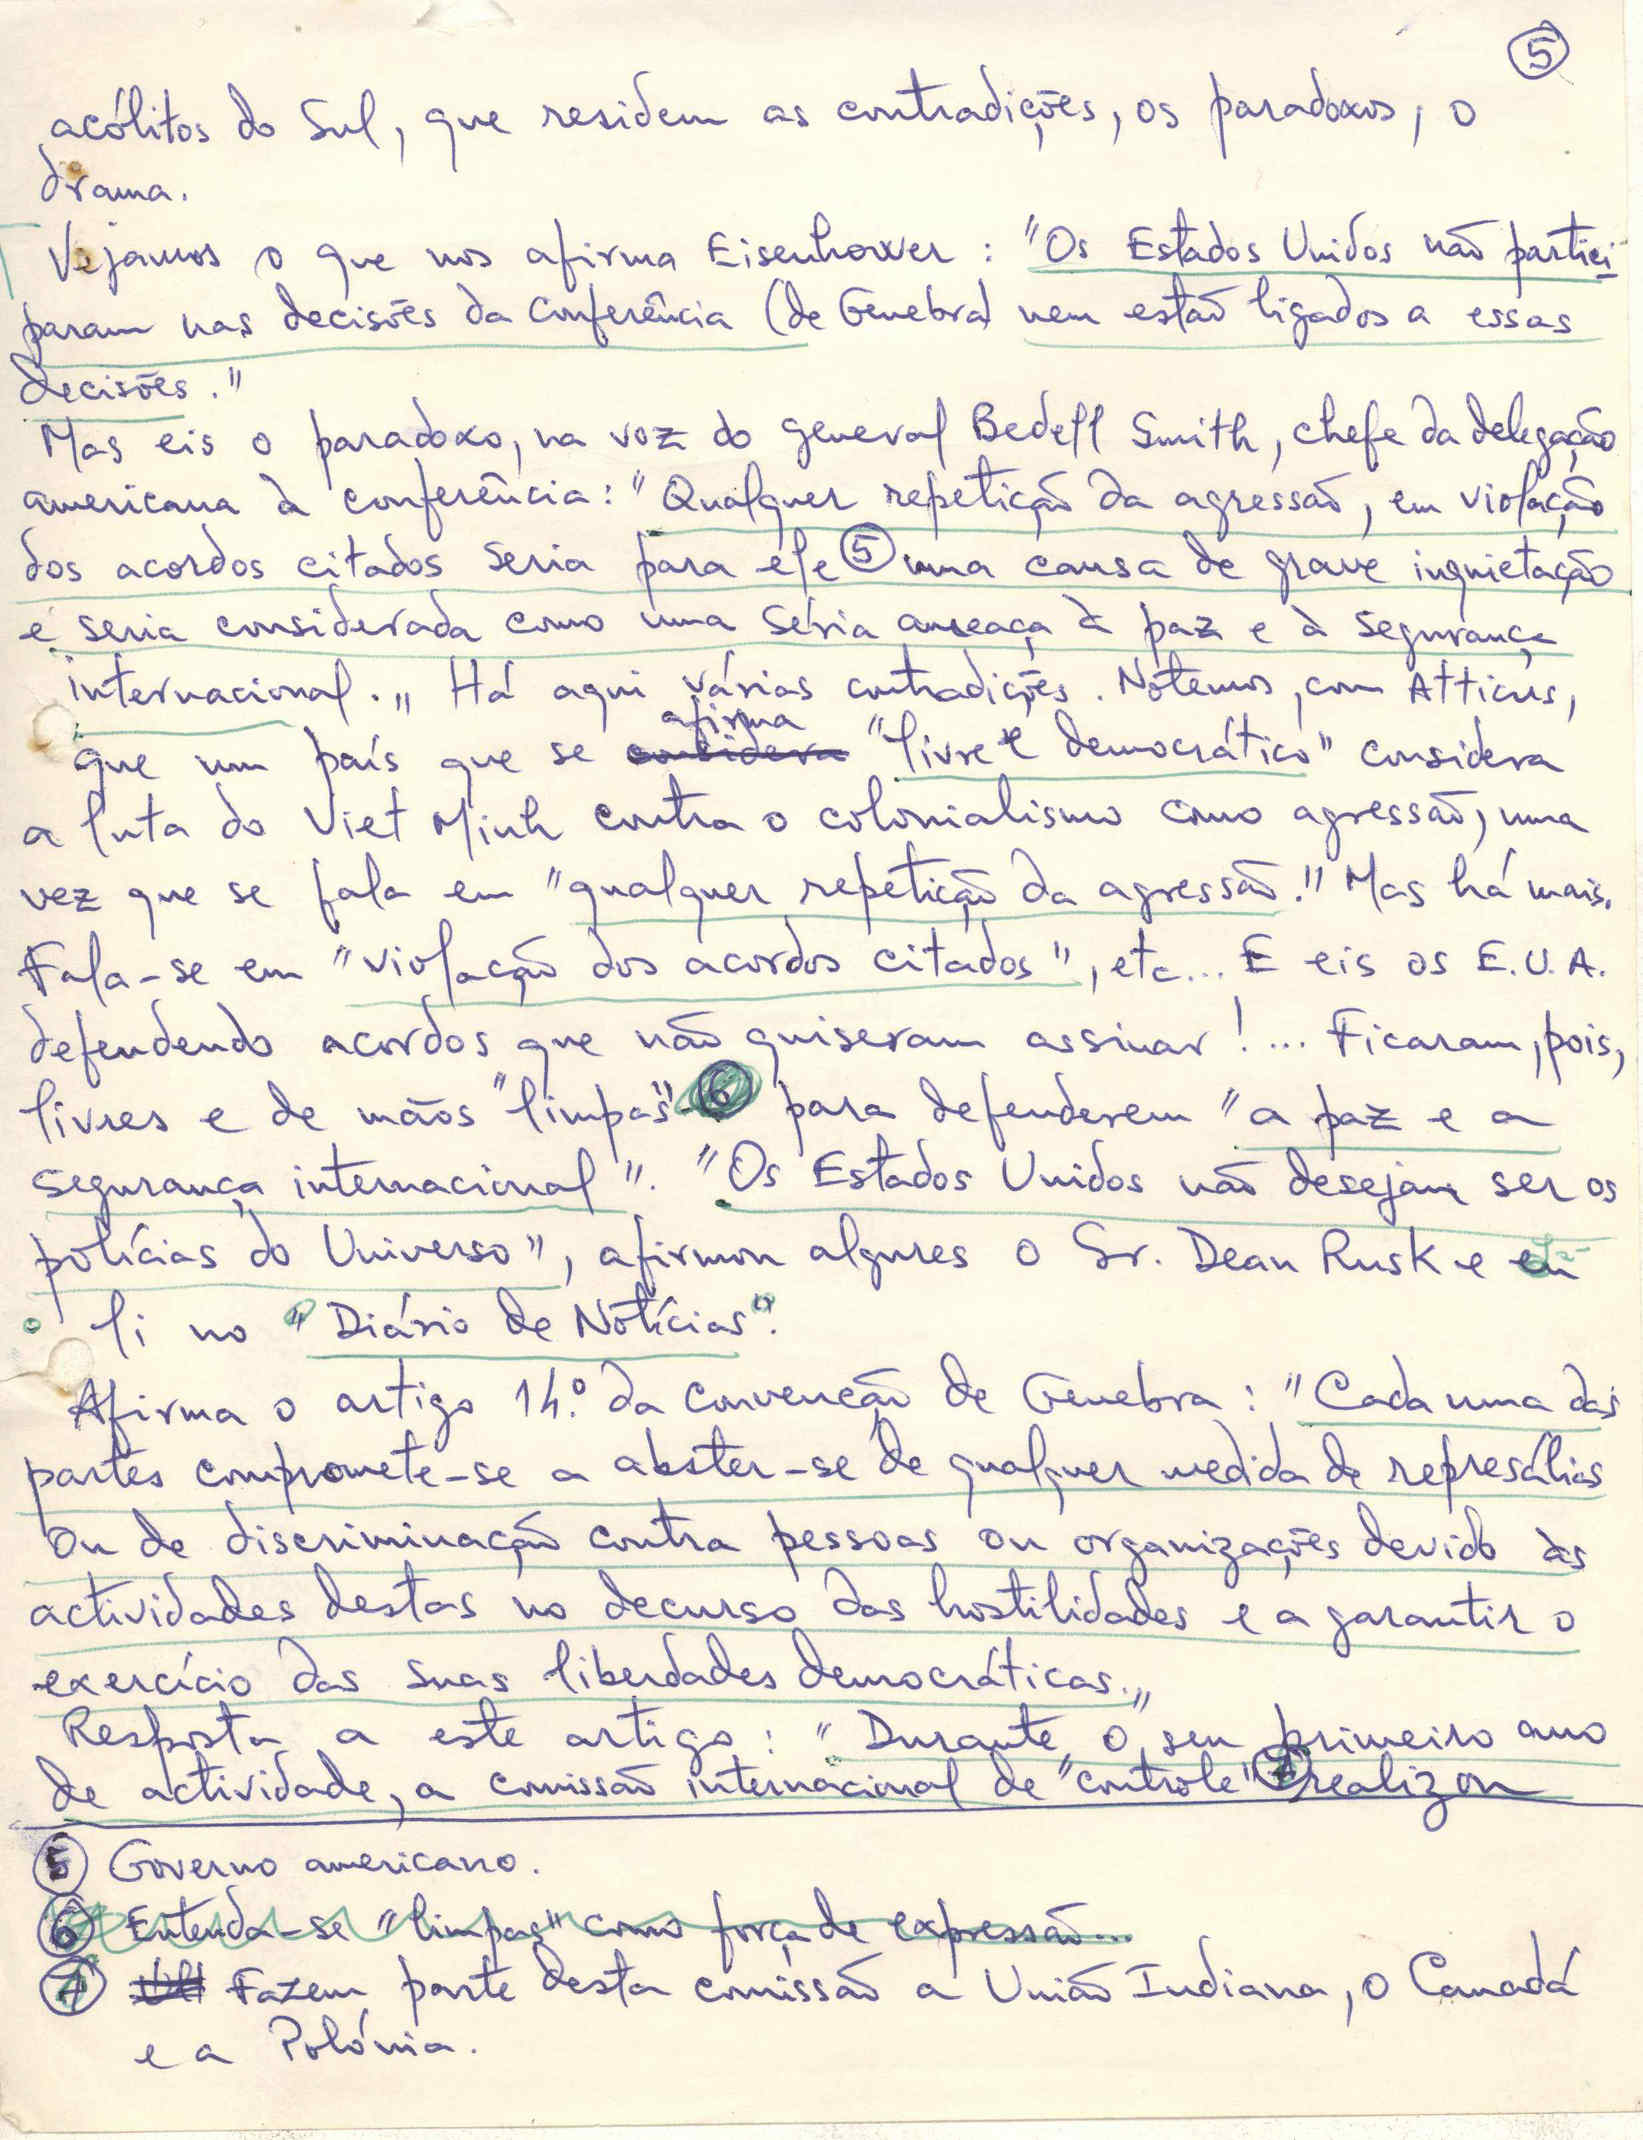 5
acólitos do Sul, que residem as contradições, os paradoxos, o
drama.
Vejamos o que nos afirma Eisenhower : "Os Estados Unidos não partici-
param nas decisões da Conferência (de Genebra) nem estão ligados a essas
decisões."
Mas eis o paradoxo, na voz do general Bedell Smith, chefe da delegação
americana à conferência: "Qualquer repetição da agressão, em violação
dos acordos citados seria para ele 5 uma causa de grave inquietação
e seria considerada como uma séria ameaça à paz e à segurança
internacional.„ Há aqui várias contradições. Notemos, com Atticus,
afirma
que um país que se considera "livre e democrático" considera
a luta do Viet Minh contra o colonialismo como agressão, uma
vez que se fala em "qualquer repetição da agressão." Mas há mais.
Fala-se em "violação dos acordos citados", etc... E eis os E.U.A.
defendendo acordos que não quiseram assinar!... Ficaram, pois,
livres e de mãos "limpas" 6 para defenderem "a paz e a
segurança internacional". "Os Estados Unidos não desejam ser os
polícias do Universo", afirmou algures o Sr. Dean Rusk e eu
li no "Diário de Notícias".
Afirma o artigo 14.º da Convenção de Genebra : "Cada uma das
partes compromete-se a abster-se de qualquer medida de represálias
ou de discriminação contra pessoas ou organizações devido às
actividades destas no decurso das hostilidades e a garantir o
exercício das suas liberdades democráticas.„
Resposta a este artigo : "Durante o seu primeiro ano
de actividade, a comissão internacional de "controle" 7 realizou
5 Governo americano.
6 Entenda-se "limpas" como força de expressão...
7 Fazem parte desta comissão a União Indiana, o Canadá
e a Polónia.